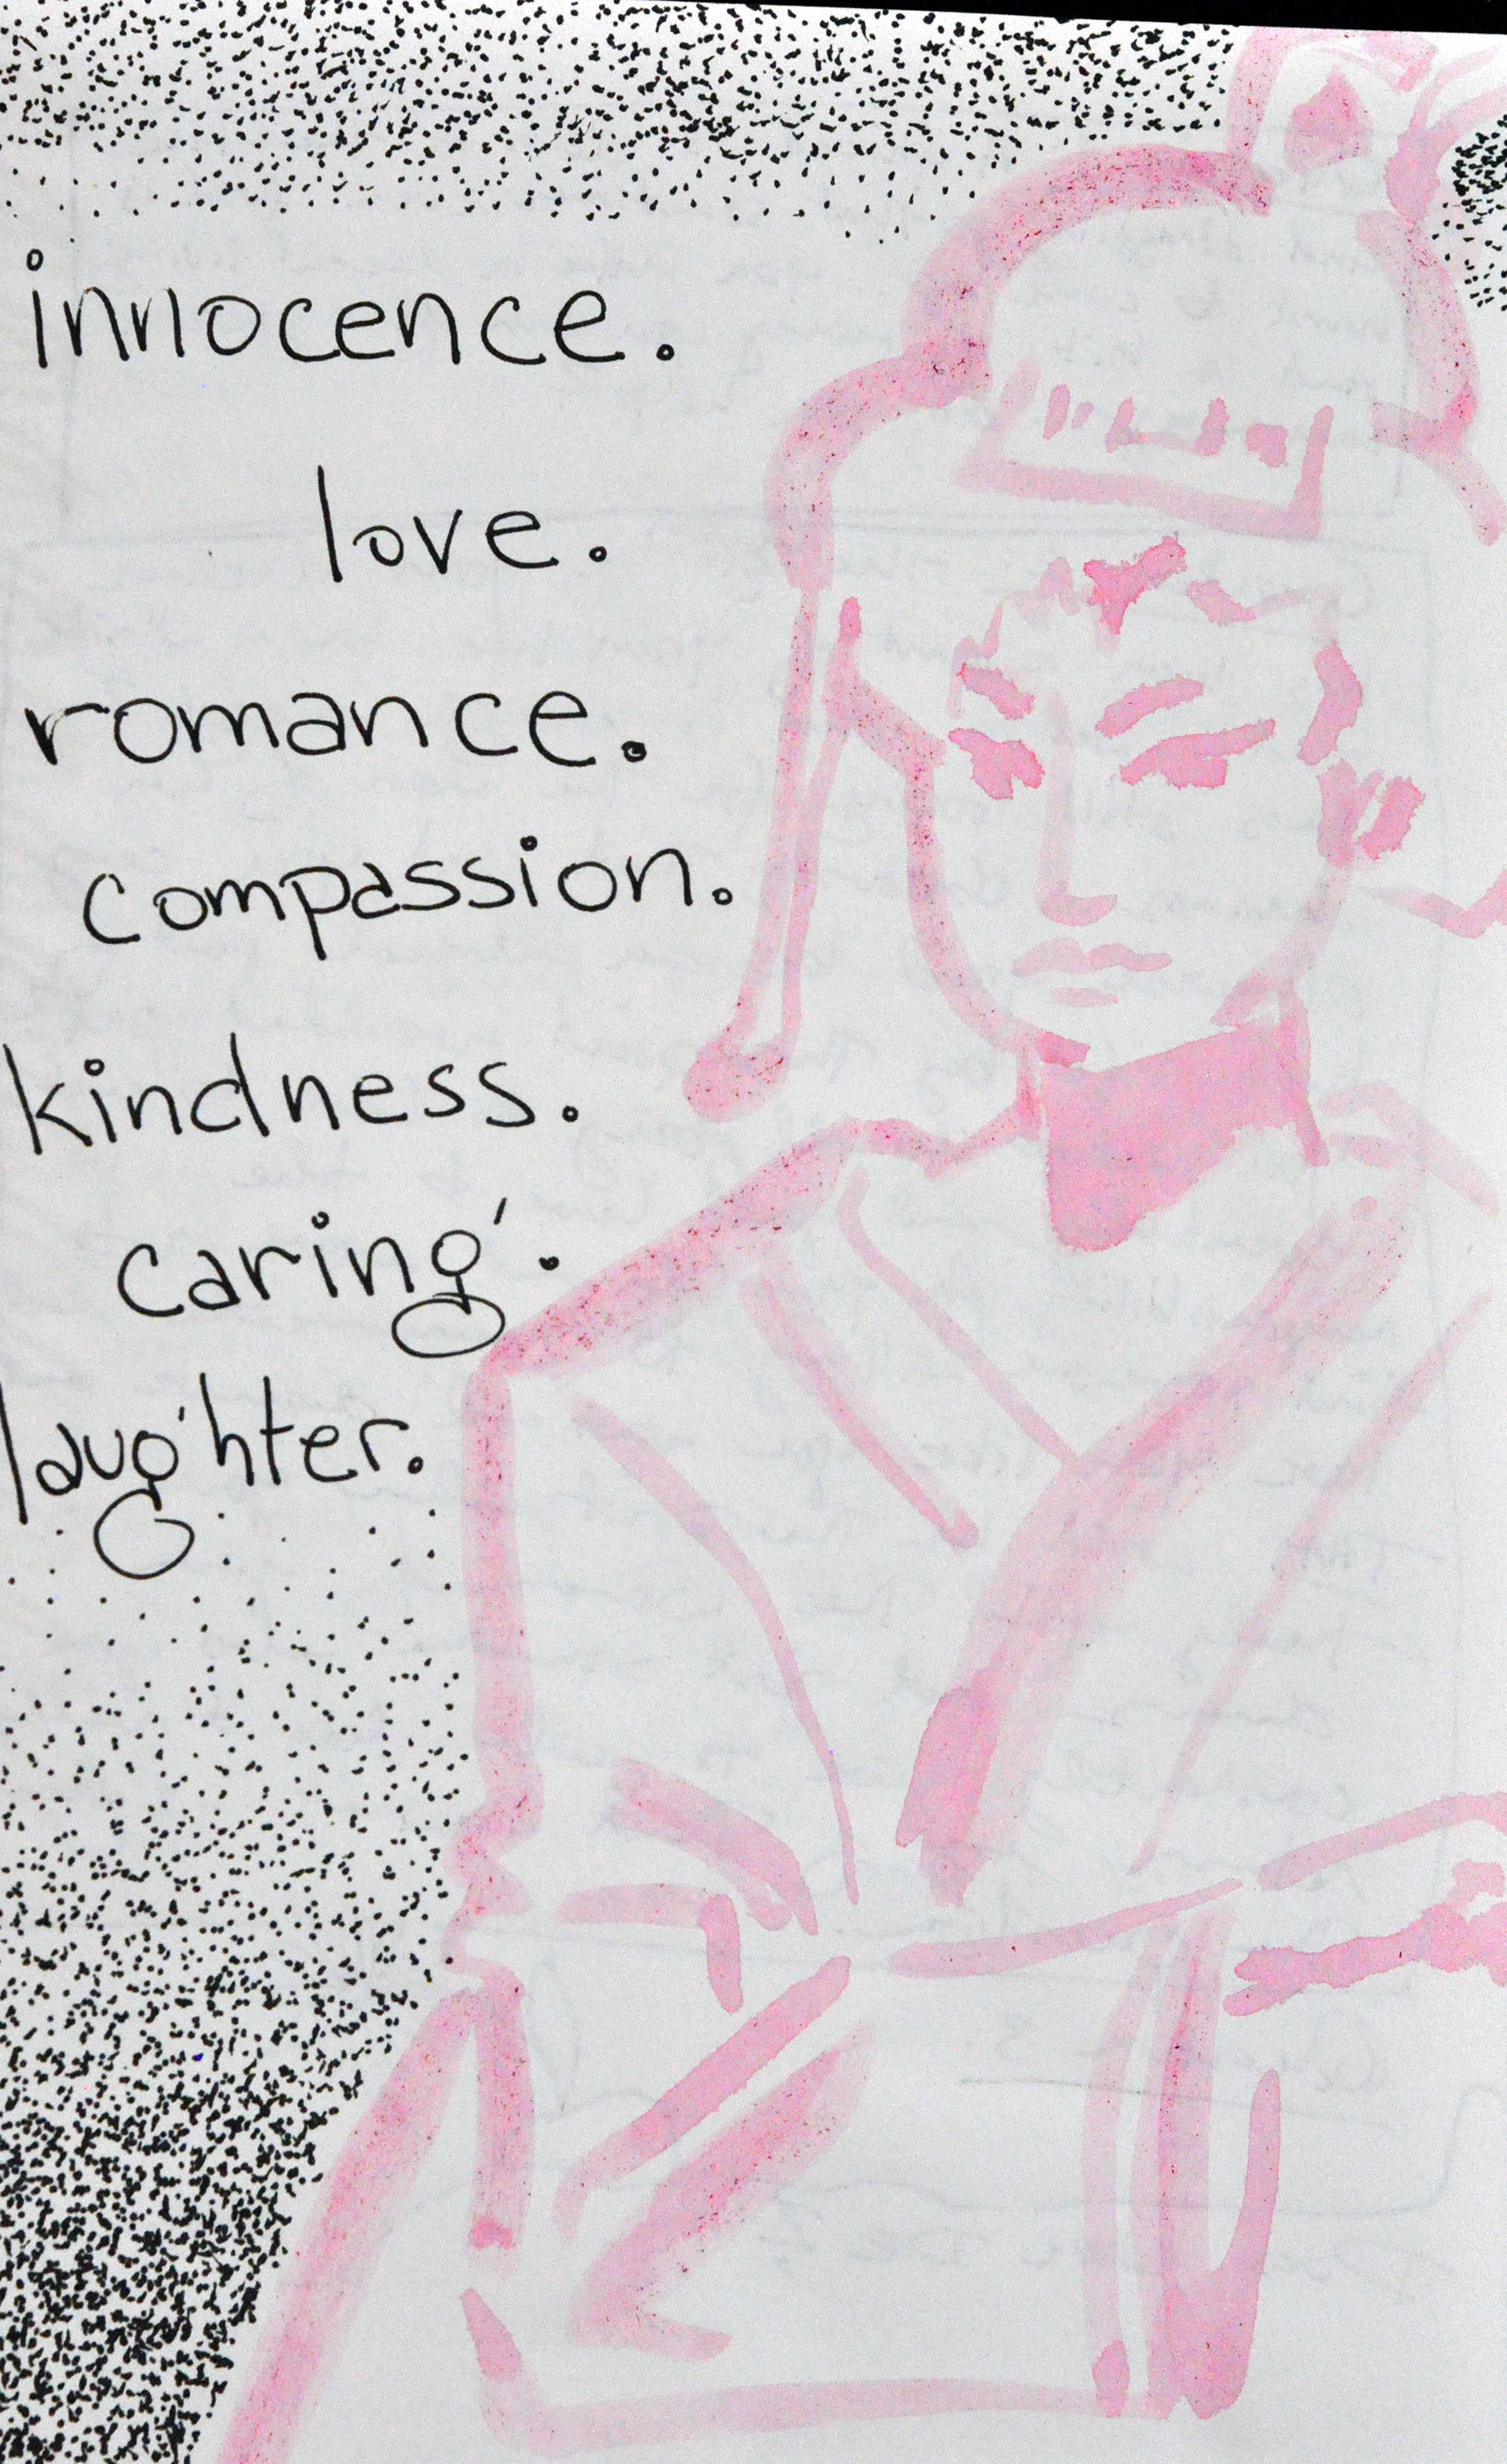 innocence.
love.
romance.
compassion.
kindness.
caring.
laughter.